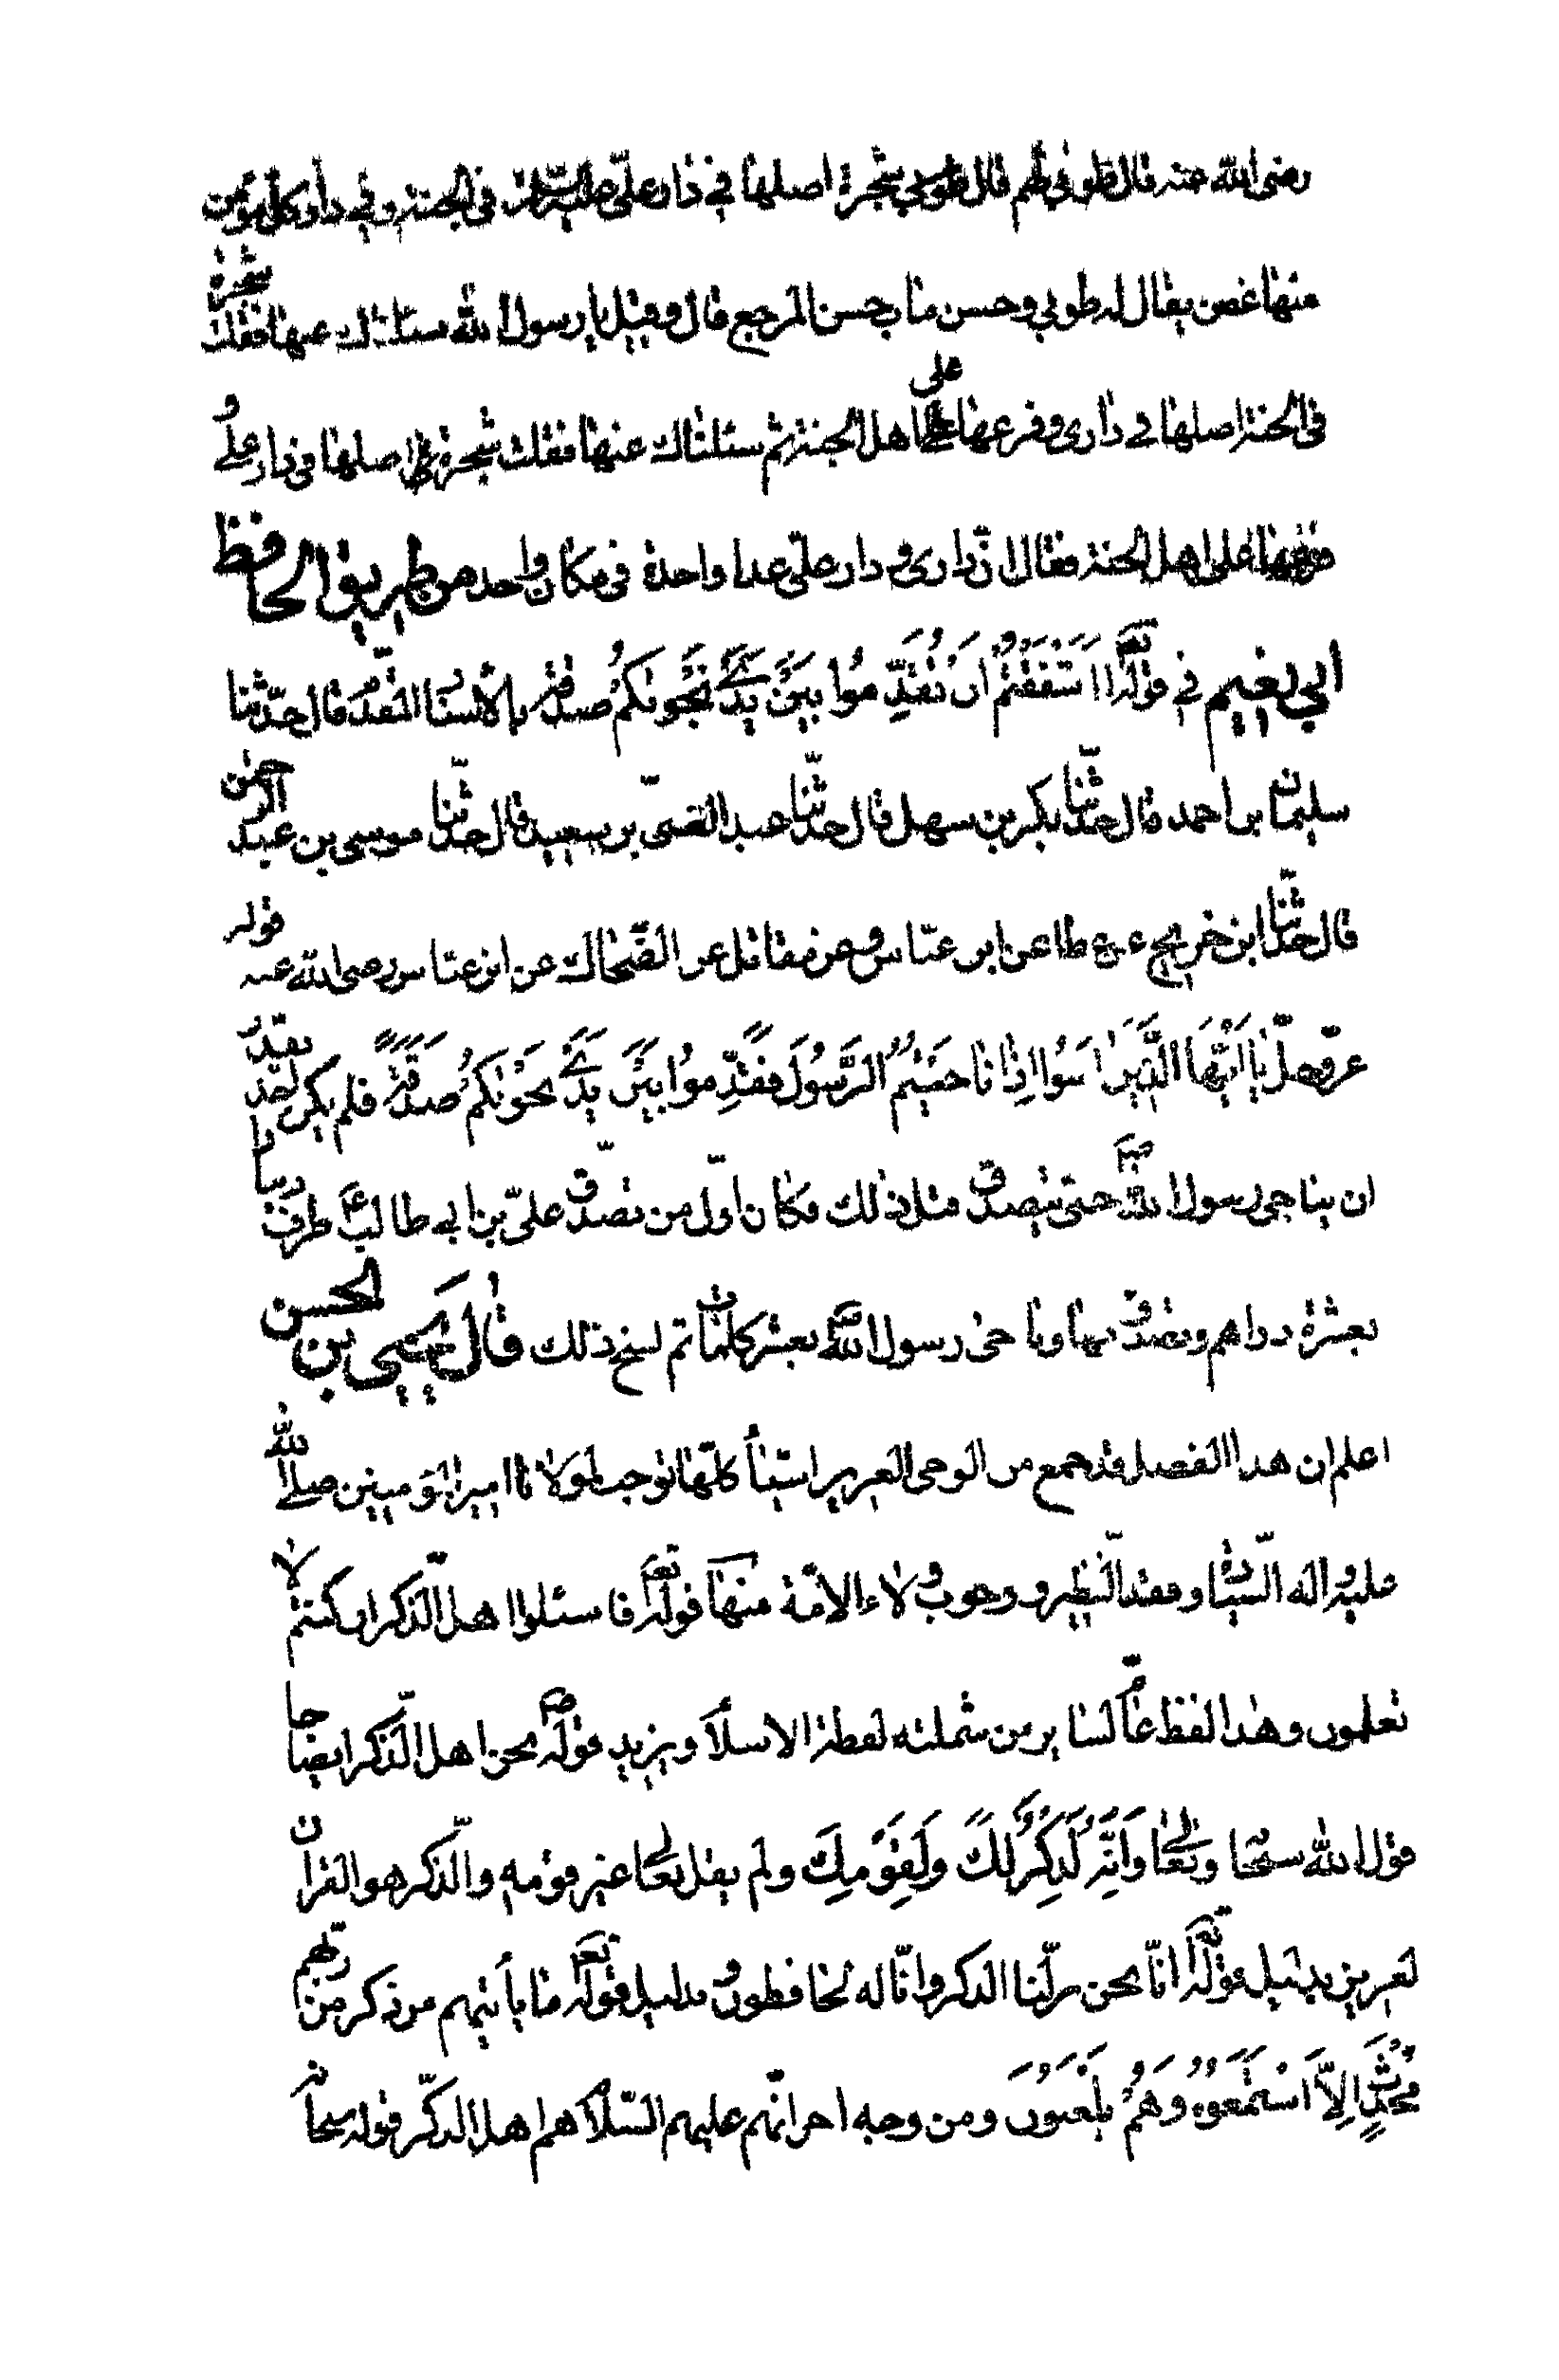 رضى الله عنه قال طوبى لهم قال طوبى شجرة اصلها في دار علي في الجنة وفي دار كل مؤمن
منها غصن يقال له طوبى وحسن ماب حسن المرجع قال وقيل يا رسول الله سئلناك عنها فقلت شجرة
فى الجنة اصلها في دارى وفرعها على اهل الجنة ثم سئلناك عنها فقلت شجرة اصلها فى دار على و
فرعها على اهل الجنة فقال ان دارى و دار على غدا واحدة فى مكان واحد من طريق الحافظ
ابي نعيم في قوله تعالى ااشفقتم ان تقدموا بين يدي نجويكم صدقة بالاسناد المقدم قال حدثنا
سليمان بن احمد قال حدثنا بكر بن سهل قال حدثنا عبد الغنى بن سعيد قال حدثنا موسى بن عبد الرحمن
قال حدثنا ابن جريج عن عطا عن ابن عباس وعن مقاتل عن الضحاك عن ابن عباس رضى الله عنه قوله
عز وجل يا ايها الذين امنوا اذا ناجيتم الرسول فقدموا بين يدي نجويكم صدقة فلم يكن احد يقدر
ان يناجى رسول الله ص حتى يتصدق قبل ذلك فكان اول من تصدق على بن ابي طالب ع صرف دينارا
بعشرة دراهم وتصدق بها وناجى رسول الله ص بعشر كلمات ثم نسخ ذلك قال يحيى بن الحسن
اعلم ان هذا الفصل قد جمع من الوحى العزيز اشياء كلها توجب لمولانا امير المومنين صلى الله
عليه واله السيادة وفقد النظير ووجوب ولاء الامة منها قوله تع فاسئلوا اهل الذكر ان كنتم لا
تعلمون وهذا لفظ عام لسائر من شملته لفظة الاسلام ويزيد قوله ص نحن اهل الذكر ايضاحا
قول الله سبحانه وتعالى وانه لذكر لك ولقومك ولم يقل تعالى غير قومه والذكر هو القران
لعزيز بدليل قوله تع انا نحن نزلنا الذكر وانا له لحافظون وبدليل قوله تع ما ياتيهم من ذكر من ربهم
محدث الا استمعوه وهم يلعبون ومن وجه اخر انهم عليهم السلام هم اهل الذكر قوله سبحانه